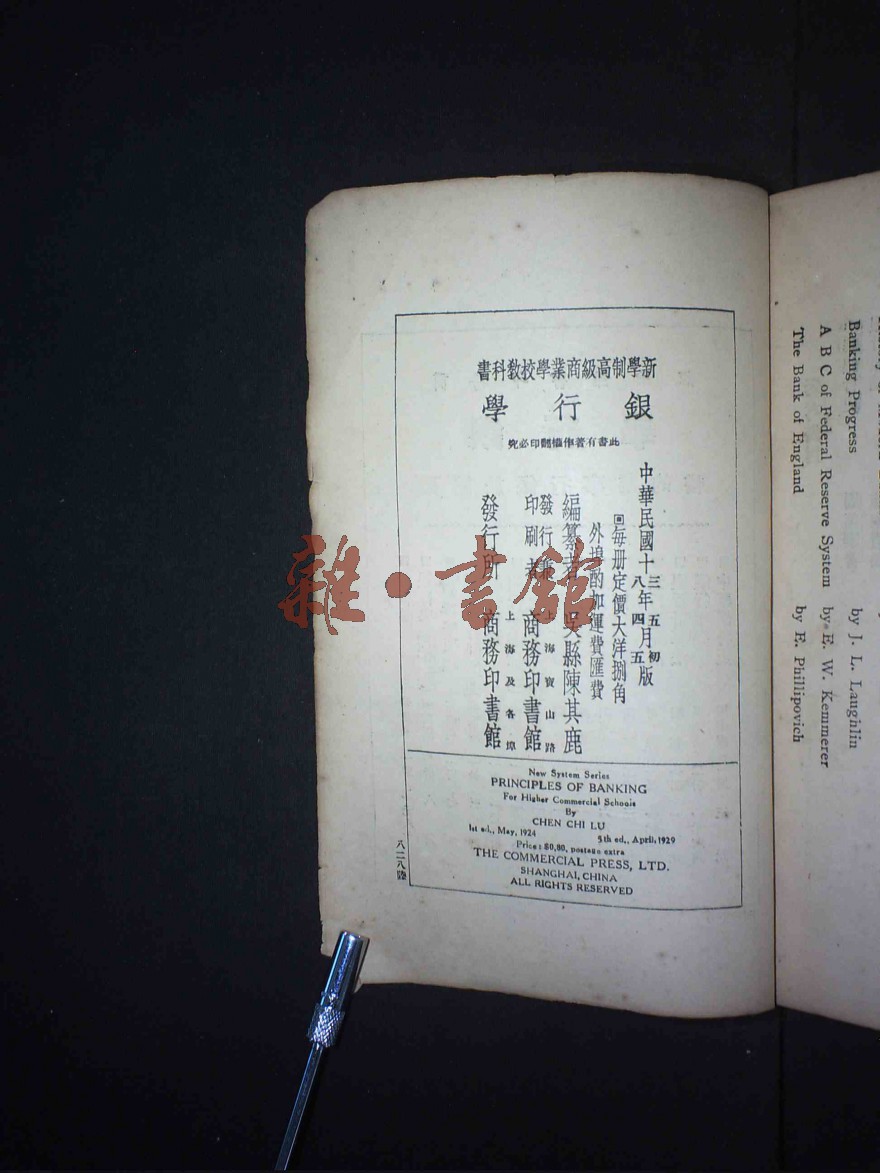 新學制高級商業學校教科書
銀行學
此書有著作權翻印必究
中華民國十三年五月初版
八 四 五
每册定價大洋捌角
外埠酌加運費匯費
編纂者 吳縣陳其鹿
發行兼 海寶山路
印刷者 商務印書館
上海及各埠
發行所 商務印書館
New System Series
PRINCIPLES OF BANKING
For Higher Commercial Schools
By
CHEN CHI LU
1st ed., May, 1924 5th ed., April, 1929
Price: $0,80, postage extra
THE COMMERCIAL PRESS, LTD.
SHANGHAI, CHINA
ALL RIGHTS RESERVED
八二八陸
Banking Progress by J. L. Laughlin
A B C of Federal Reserve System by E. W. Kemmerer
The Bank of England by E. Phillipovich
雜·書館